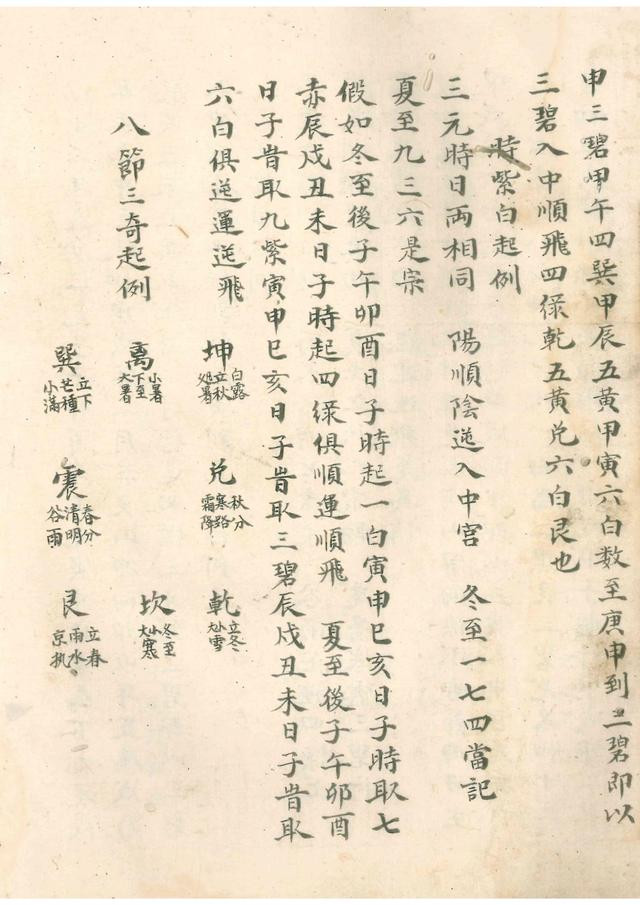 申三碧甲午四巽甲辰五黃甲寅六白数至庚申到三碧即以
三碧入中順飛四綠乾五黃兌六白艮也
時紫白起例
三元時日両相同　陽順陰逆入中宮　冬至一七四當記
夏至九三六是宗
假如冬至後子午卯酉日子時起一白寅申巳亥日子時取七
赤辰戌丑未日子時起四綠俱順運順飛　夏至後子午卯酉
日子昔取九紫寅申巳亥日子昔取三碧辰戌丑未日子昔取
六白俱逆運逆飛
八節三奇起例
坤 白露 立秋 処暑
兌 秋分 寒路 霜降
乾 立冬 小雪 大雪
離 小暑 下至 大暑
坎 冬至 小寒 大寒
巽 立下 芒種 小滿
震 春分 清明 谷雨
艮 立春 雨水 京执